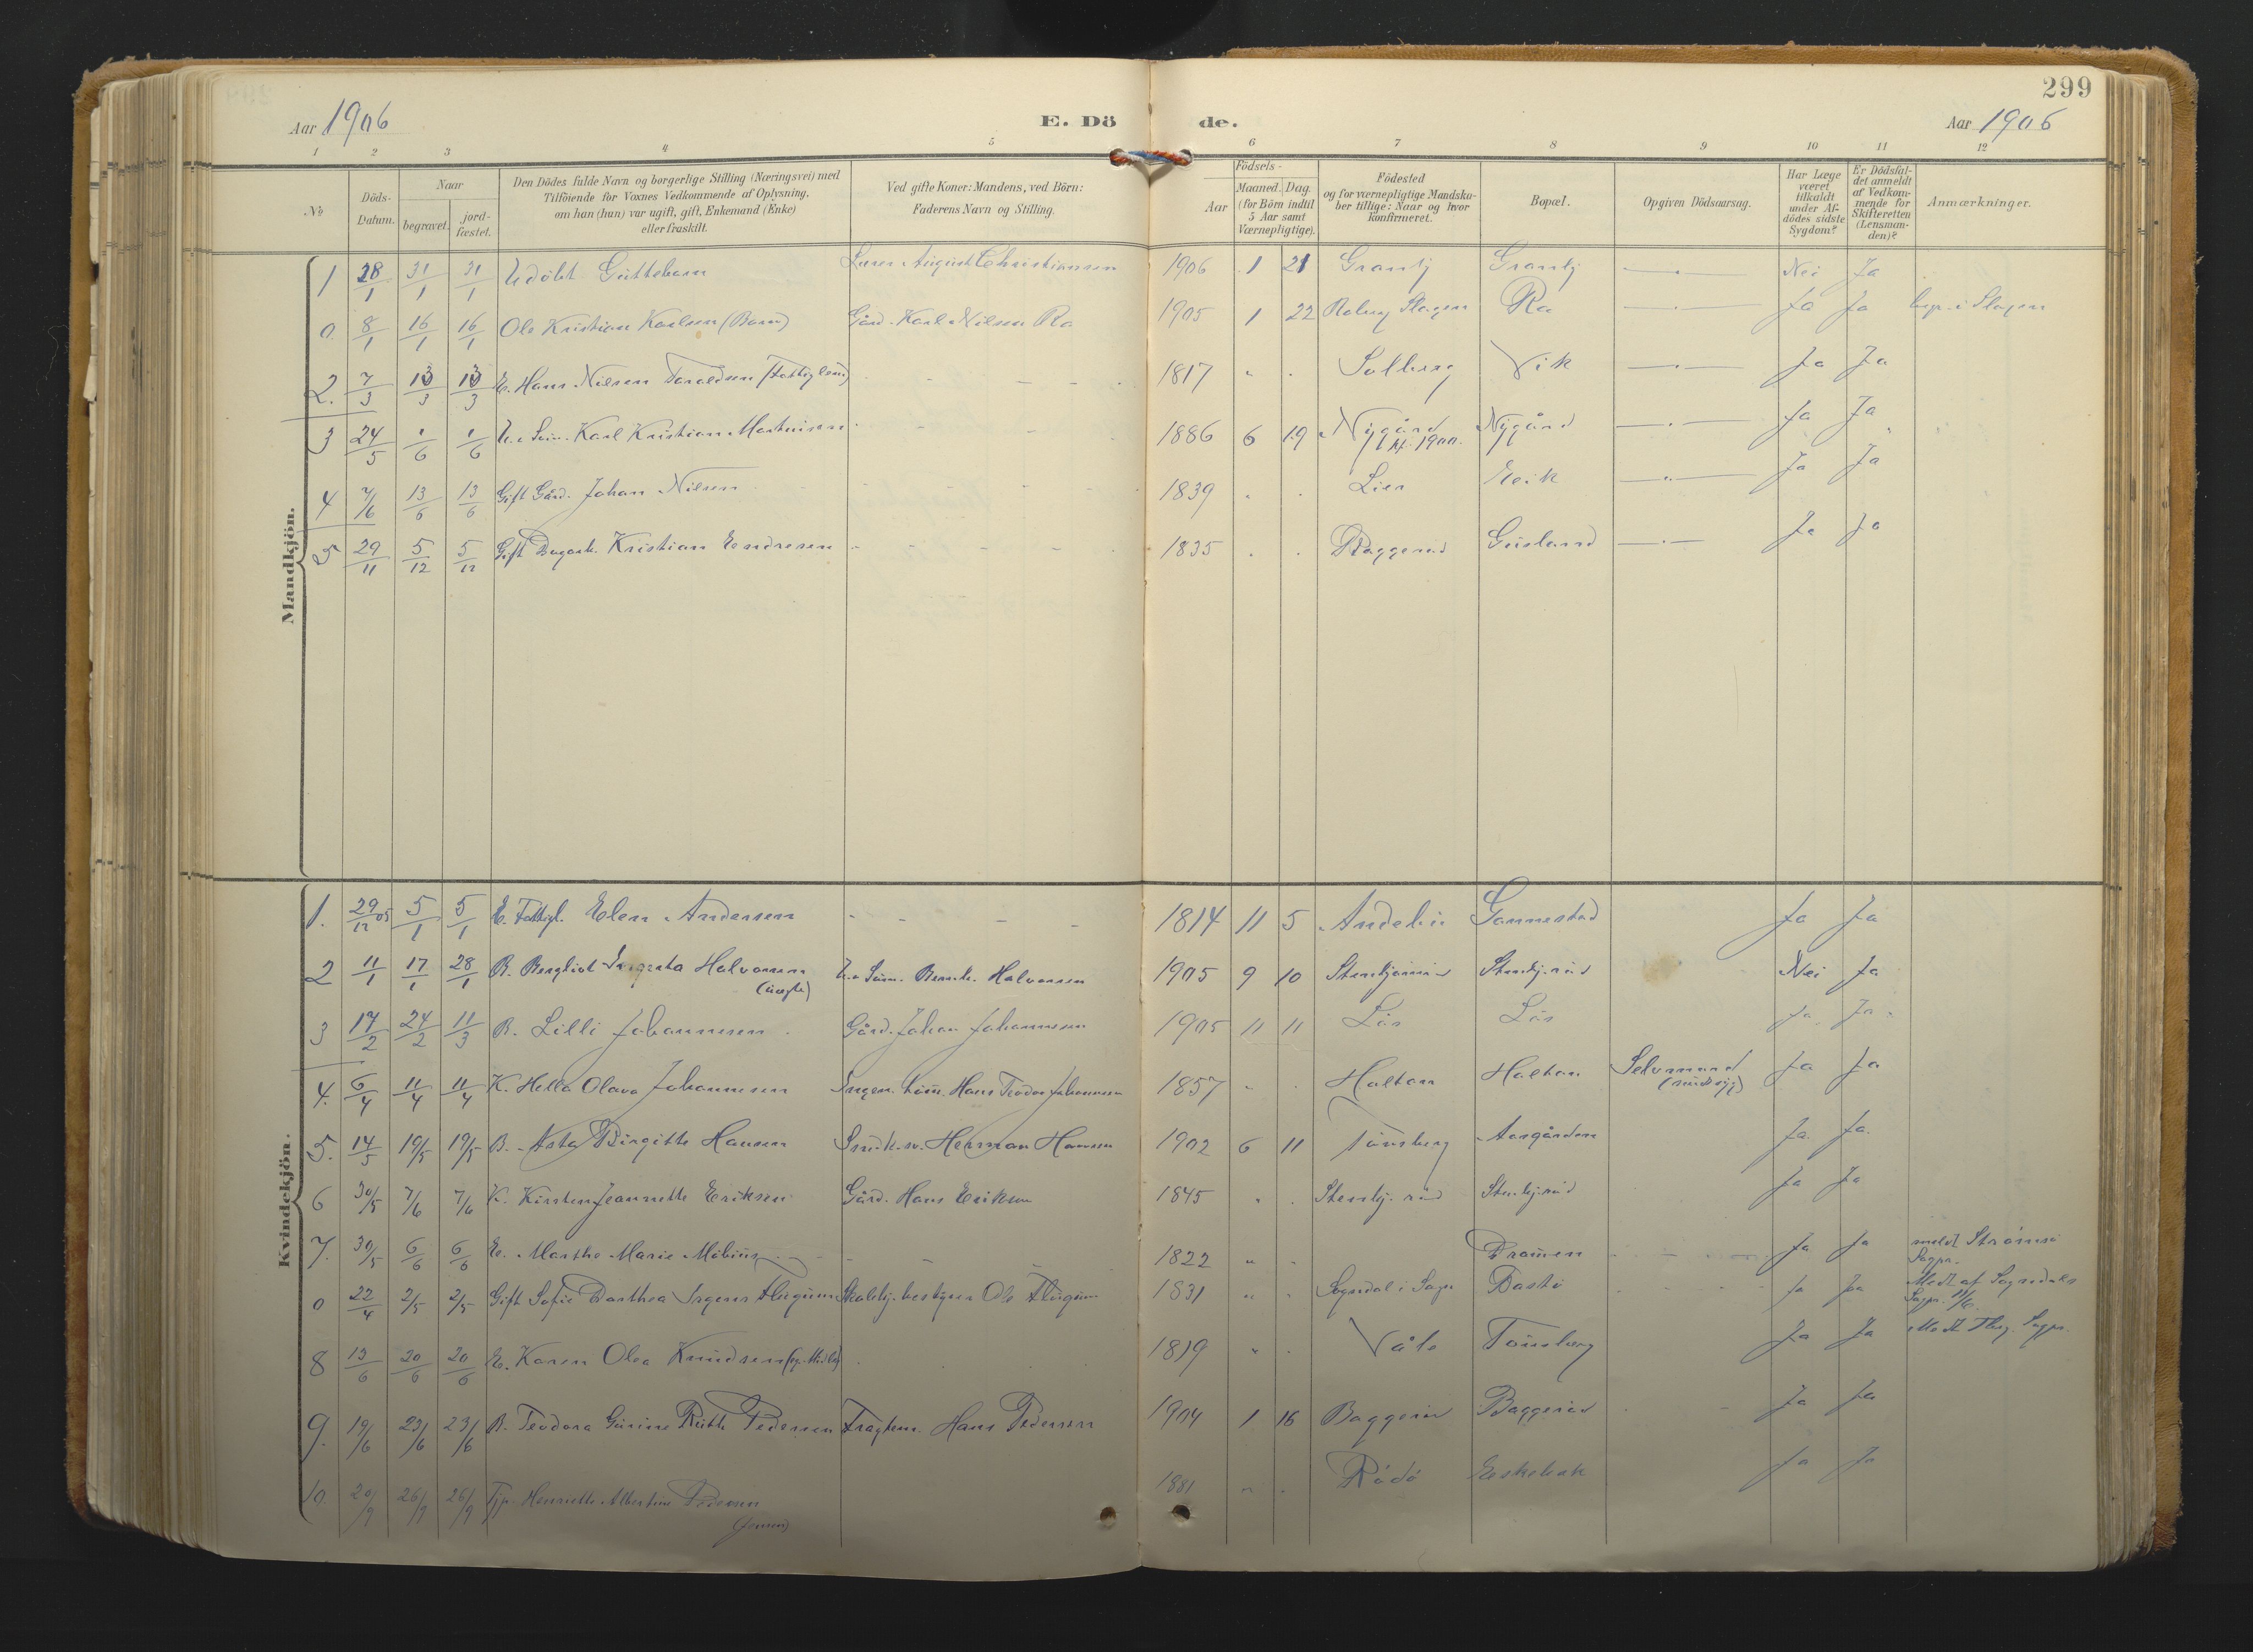 299
Aar 1906 E. Dö de. Aar 1906
1 2 3 4 5 6 7 8 9 10 11 12
No
Döds-Datum.
Naar
begravet.
jord-fæstet.
Den Dödes fulde Navn og borgerlige Stilling (Næringsvei) med
Tilföiende for Voxnes Vedkommende af Oplysning.
om han (hun) var ugift, gift, Enkemand (Enke)
eller fraskilt.
Ved gifte Koner: Mandens, ved Börn:
Faderens Navn og Stilling.
Födsels-
Aar
Maaned. Dag.
(for Börn indtil
5 Aar samt
Værnepligtige).
Födested
og for værnepligtige Mandska-
ber tillige: Naar og hvor
konfirmeret.
Bopæl.
Opgiven Dödsaarsag.
Har Læge
været
tilkaldt
under Af-
dödes sidste
Sygdom?
Er Dödsfal-
det anmeldt
af Vedkom-
mende for
Skifteretten
(Lensman-
den)?
Anmærkninger.
Mandkjön.
1 28/1 31/1 31/1 Udöbt Guttebarn August Christiansen 1906 1 21 Granly Granly Nei Ja
0 8/1 16/1 16/1 Ole Kristian Karlsen (Barn) Gård. Karl Nilsen Ra 1905 1 22 Slagen Ra Ja Ja i Slagen
2. 7/3 13/3 13/3 E. Hans Nilsen (Fattiglem) 1817 Solberg Vik Ja Ja
3 24/5 1/6 1/6 U. Søm. Karl Kristian Martinisen 1886 6 19 Nygård 1900. Nygård Ja Ja
4 7/6 13/6 13/6 Gift Gård. Johan Nilsen 1839 Lier Eeik Ja Ja
5 29/11 5/12 5/12 Gift Dagarb. Kristian Eendresen 1835 Baggerud Guslund Ja Ja
Kvindekjön.
1. 29/12 05 5/1 5/1 E. Fattigl. Elen Andersen 1814 11 5 Andebu Gannestad Ja Ja
2 11/1 17/1 28/1 B. Bergliot Ingerta Halvorsen U. Søm. Bernh. Halvorsen 1905 9 10 Stenkj.rud Nei Ja
(uægte)
3 17/2 24/2 11/3 B. Lilli Johannesen Gård. Johan Johannesen 1905 11 11 Lås Lås Ja Ja
4. 6/4 11/4 11/4 K. Hella Olava Johannesen Hans Teodor Johannesen 1857 Haltan Haltan Selvmord Ja Ja
(sindssyg)
5. 14/5 19/5 19/5 B. Asta Birgitte Hansen Herman Hansen 1902 6 11 Tönsberg Aasgården Ja. Ja.
6 30/5 7/6 7/6 K. Kirsten Jeannette Eriksen Gård. Hans Eriksen 1845 Stenkj.rud Stenkj.rud Ja Ja
7. 30/5 6/6 6/6 E. Marthe Marie Möbius 1822 Dramen Ja Ja meldt Strömsö
Sogpr.
0 22/4 2/5 2/5 Gift Sofie Dorthea Flugum Skolebj. bestyrer Ole Flugum 1831 Sogndal i Sogn Bastö Ja Ja Medt af Sogndals
Sogpr.
8 13/6 20/6 20/6 E. Karen Olea Knudsen 1819 Våle Tönsberg Ja Ja Medt Tbg. Sogpr.
9. 19/6 23/6 23/6 B. Teodora Gurine Ruth Pedersen Fragtem. Hans Pedersen 1904 1 16 Baggerud Baggerud Ja Ja
10. 20/9 26/9 26/9 Tjp. Henriette Albertine Pedersen 1881 Rödö Eeskebæk Ja Ja
(Jensen)